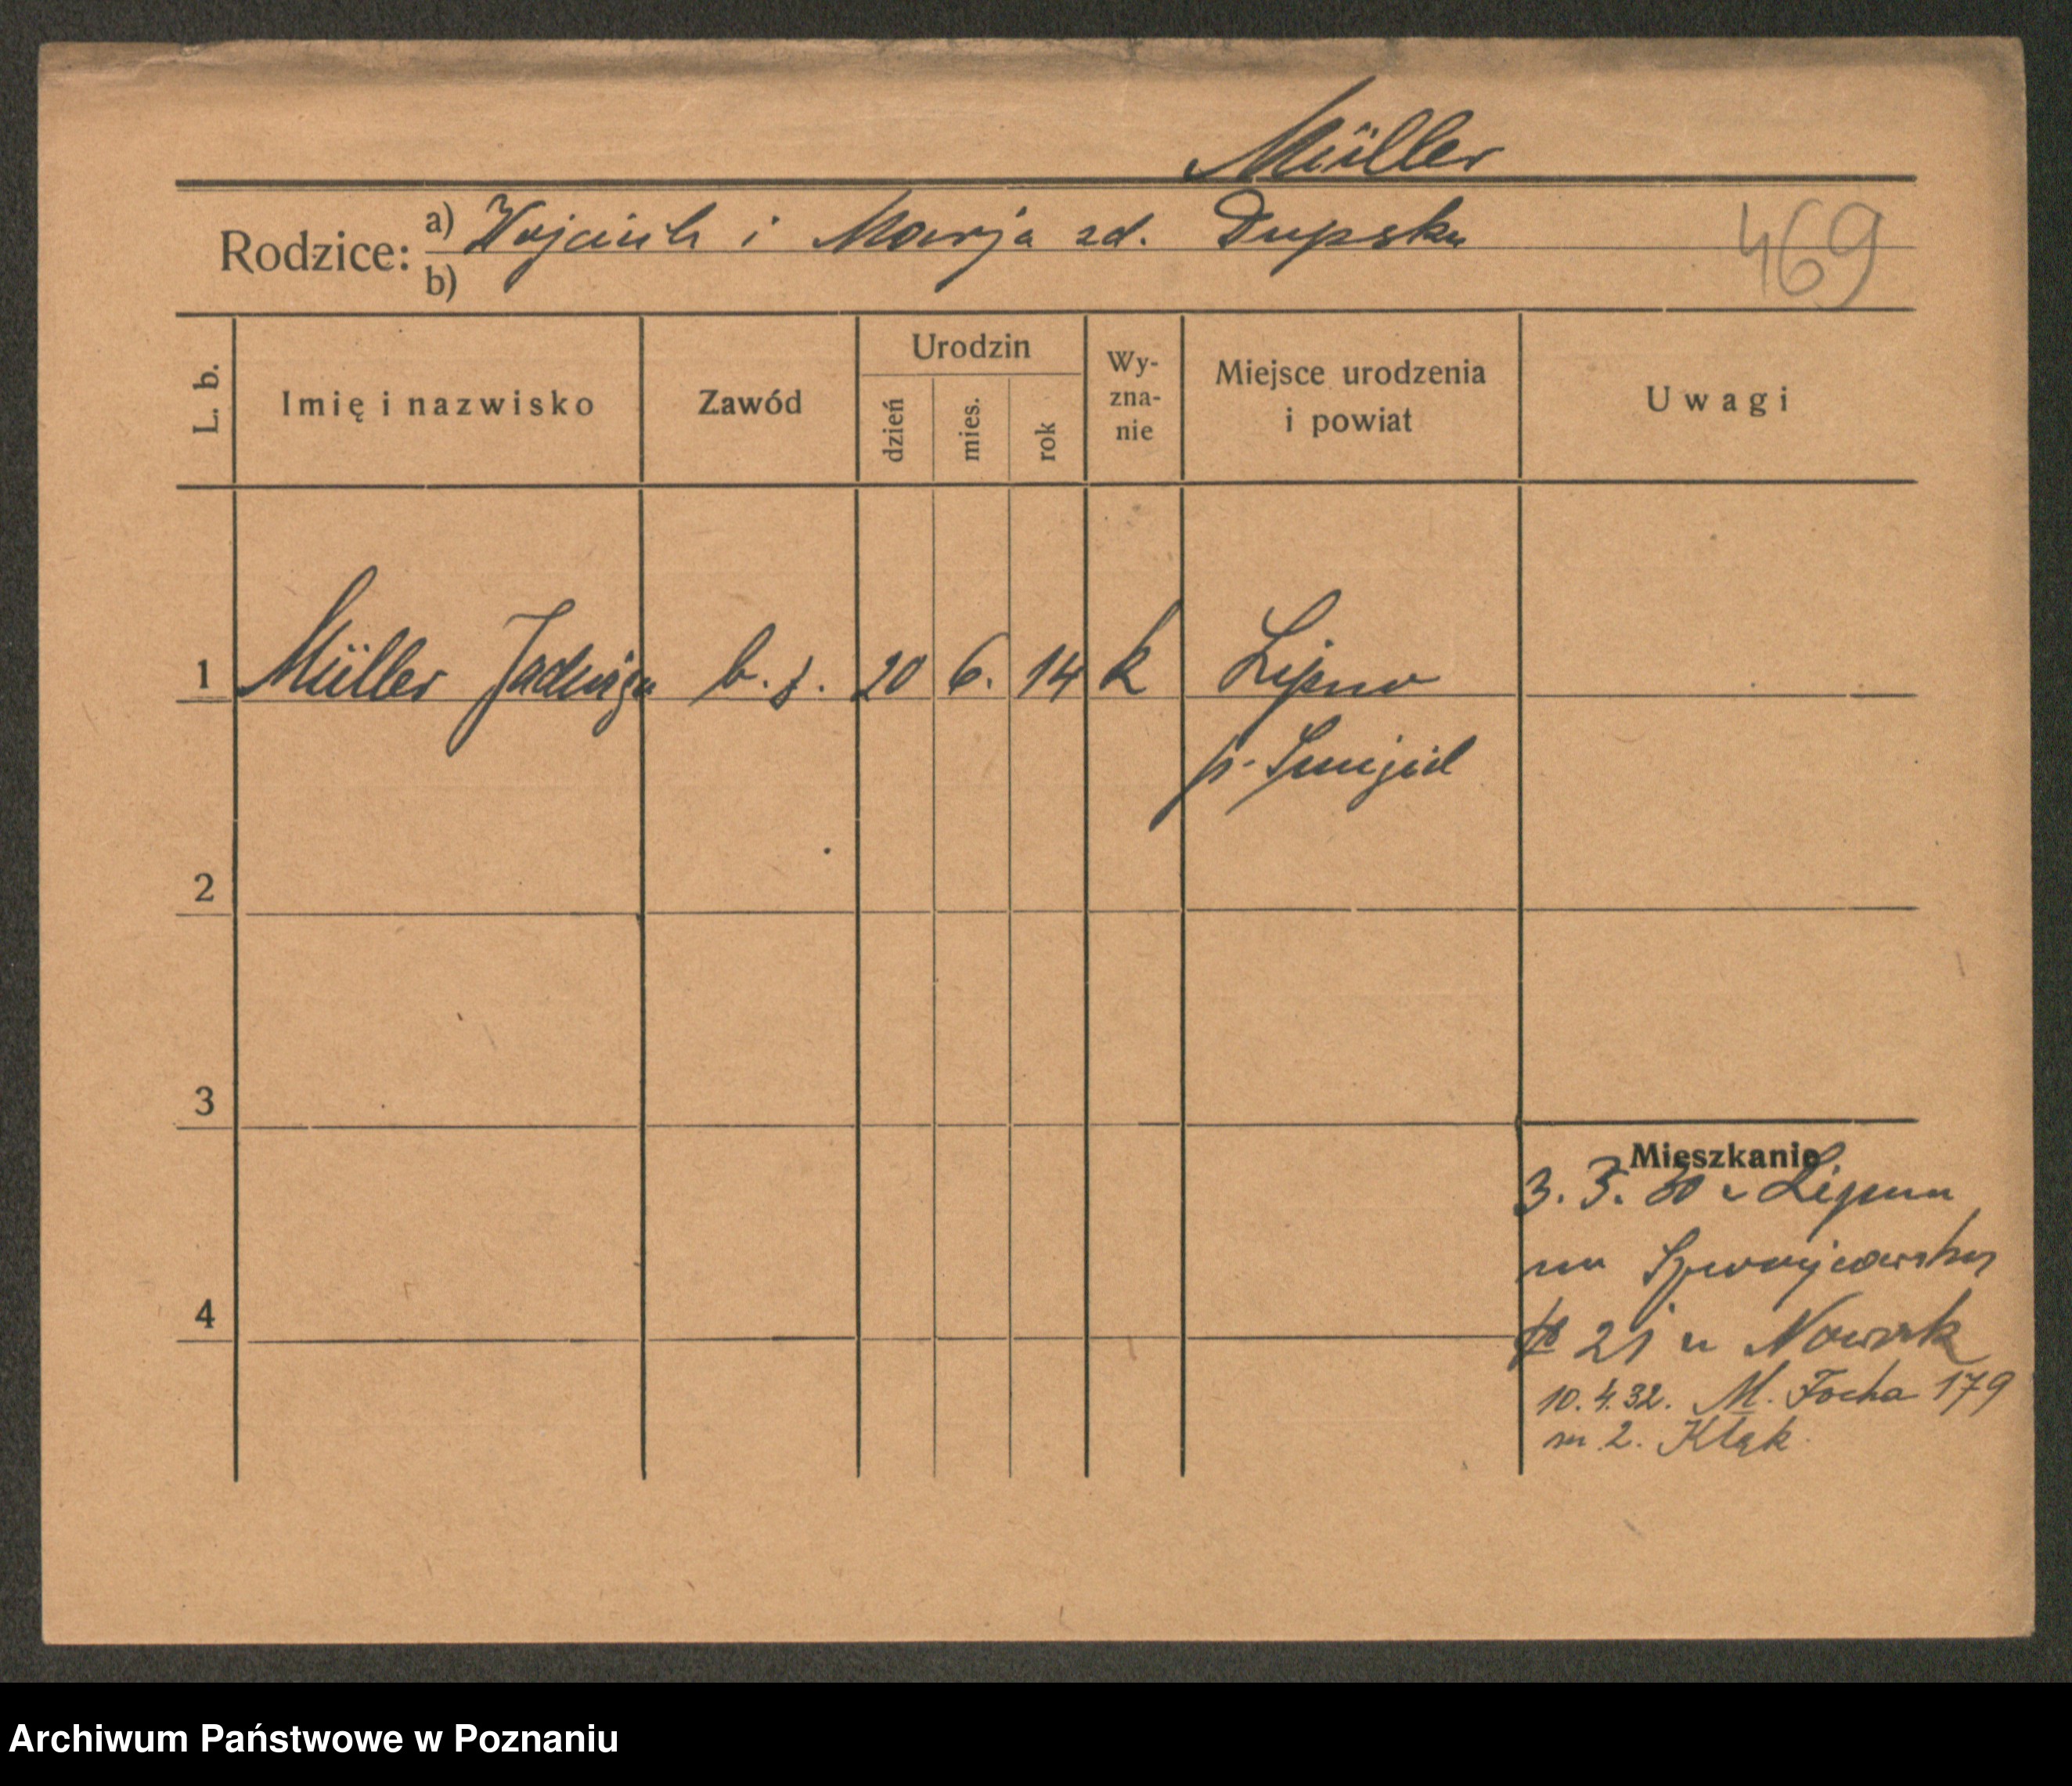 Müller
Rodzice: a) Wojciech i Marja zd. Dupska
b)
469
L. b.
Imię i nazwisko
Zawód
Urodzin
dzień
mies.
rok
Wy-
zna-
nie
Miejsce urodzenia
i powiat
Uwagi
1 Müller Jadwiga b. z. 20 6. 14 k Lipno
p. Śmigiel
2
3
4
Mieszkanie
3. 3. 30 z Lipna
na Szwajcarską
21 u Nowak
10. 4. 32. M. Focha 179
m 2. Kłąk
Archiwum Państwowe w Poznaniu